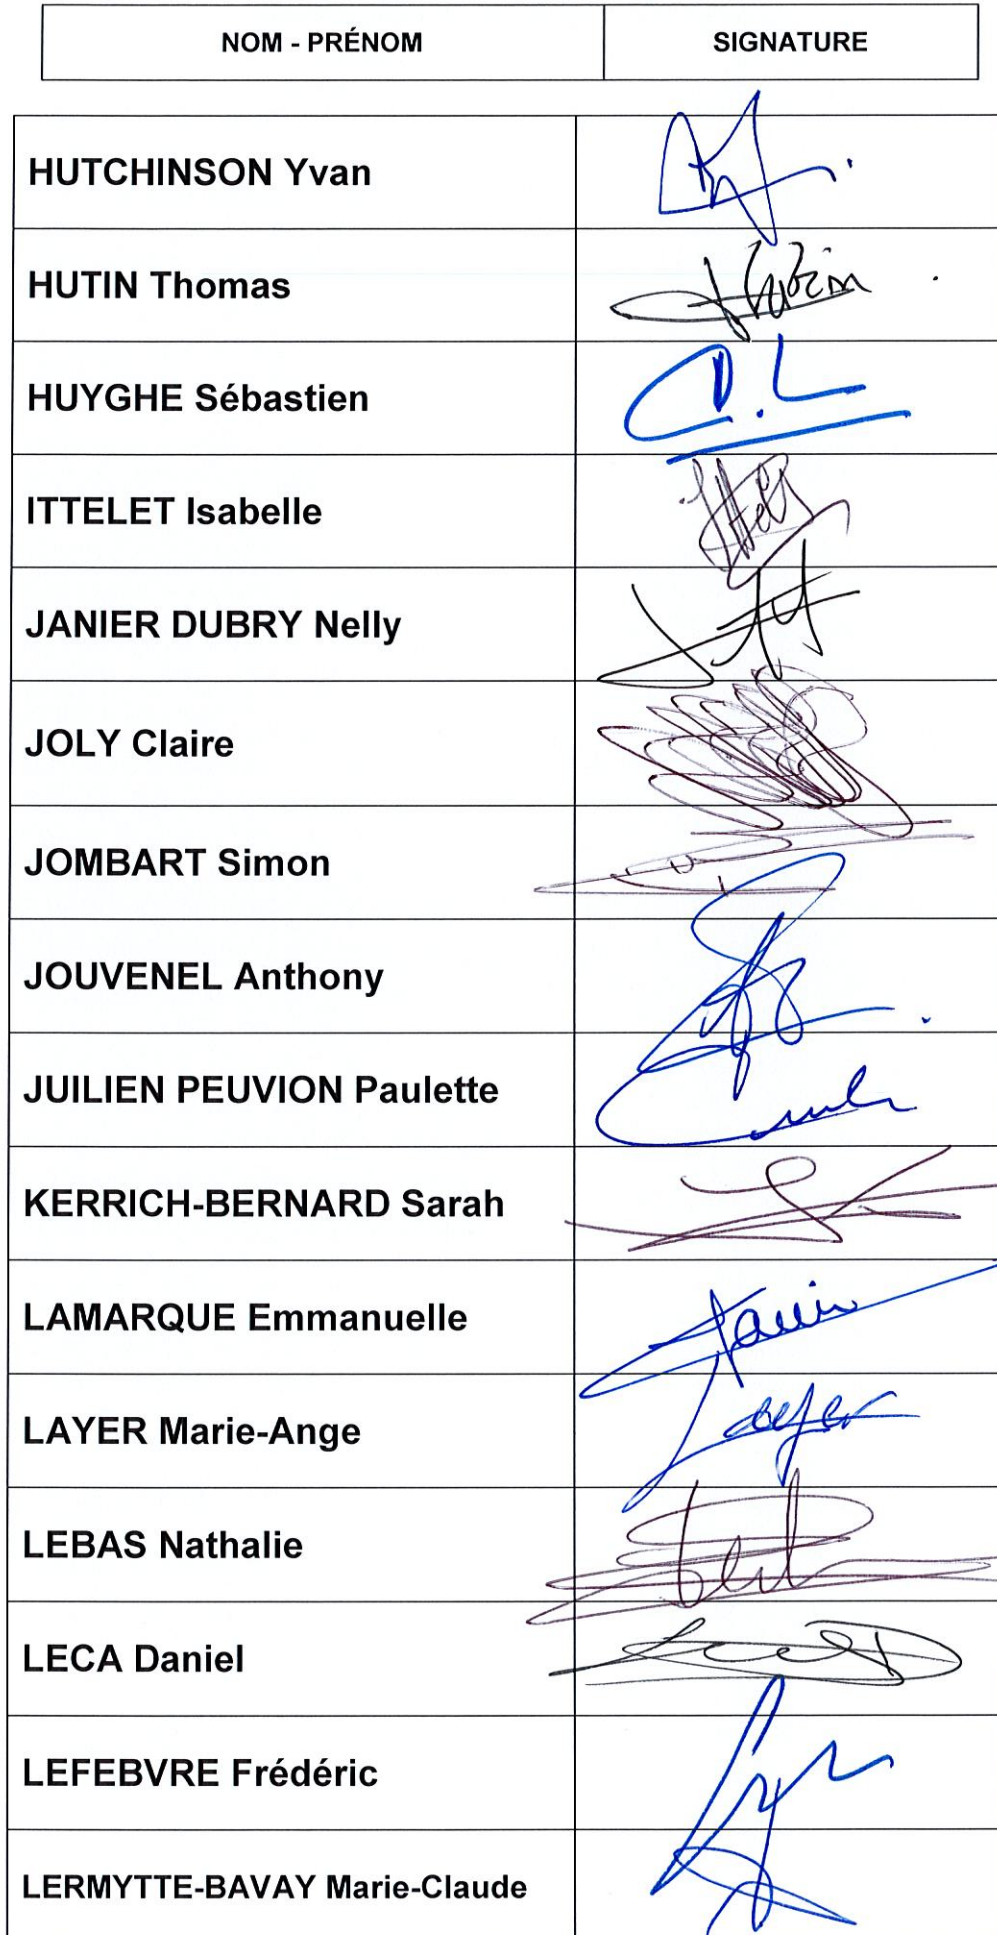 NOM - PRÉNOM SIGNATURE
HUTCHINSON Yvan
HUTIN Thomas
HUYGHE Sébastien
ITTELET Isabelle
JANIER DUBRY Nelly
JOLY Claire
JOMBART Simon
JOUVENEL Anthony
JUILIEN PEUVION Paulette
KERRICH-BERNARD Sarah
LAMARQUE Emmanuelle
LAYER Marie-Ange
LEBAS Nathalie
LECA Daniel
LEFEBVRE Frédéric
LERMYTTE-BAVAY Marie-Claude